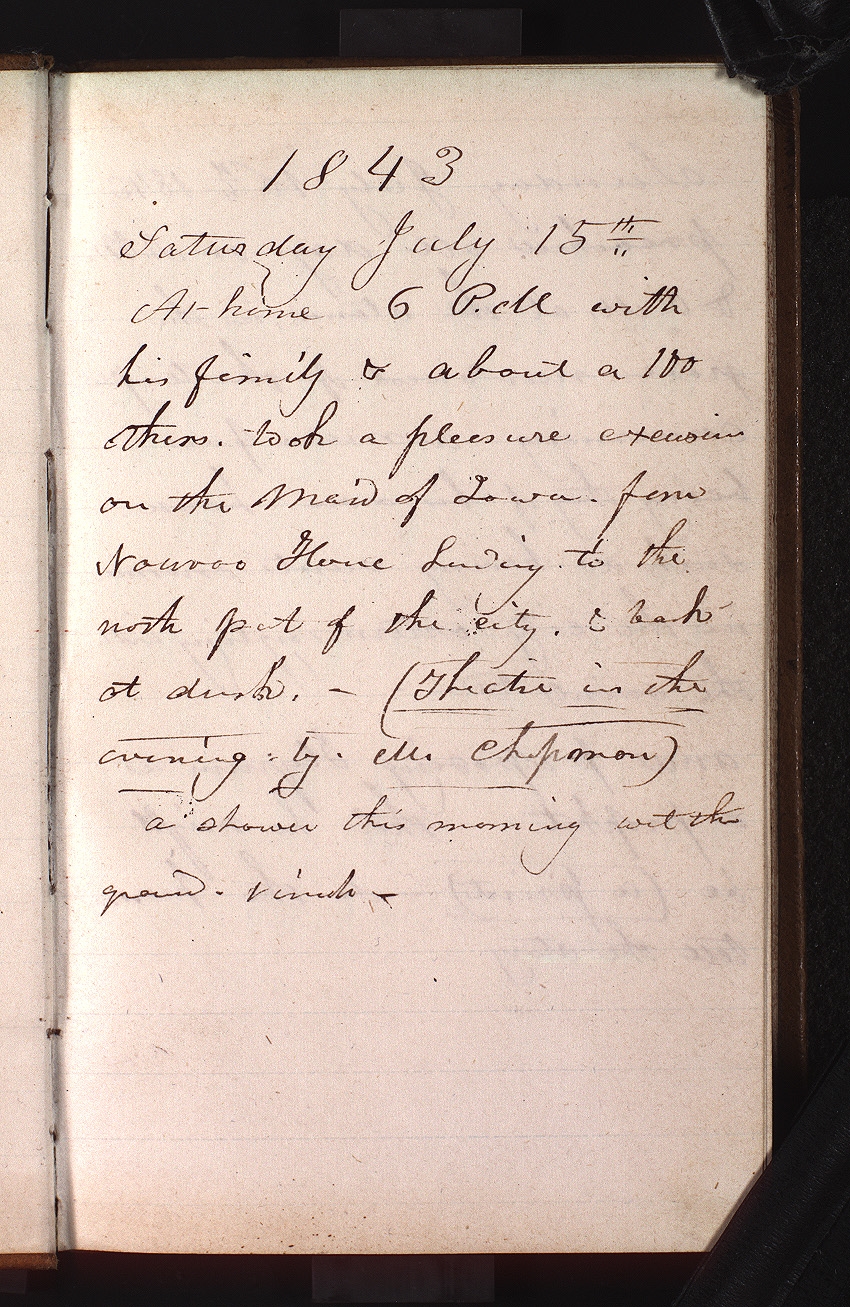 1843
Saturday July 15th
At home 6 P.M with
his family & about a 100
others. took a pleesure excusion
on the Maid of Iowa. from
Nauvoo House landing. to the
north part of the city. & back
at dusk. — (Theatre in the
evening. by. Mr Chapman)
a shower this morning wet the
ground. 1 inch —